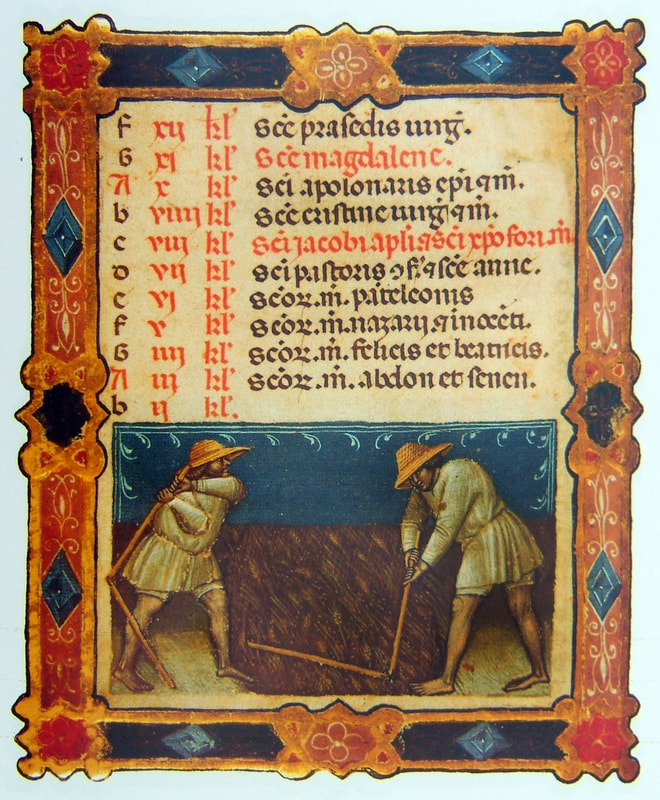 f xij kl' Sce praſedis uirg̃.
G xj kl' Sce magdalene.
A x kl' Sci apolonaris epi ⁊ m̃.
b viiij kl' Sce cristine uirg̃ ⁊ m̃.
c viij kl' Sci jacobi apl'i ⁊ sci xpofori m̃
d vij kl' Sci pastoris ɔf̃. ⁊ sce anne.
e vj kl' Scoꝝ. m̃. pãteleonis
f v kl' Scoꝝ. m̃. nazarij ⁊ inocẽti.
G iiij kl' Scoꝝ. m̃. felicis et beatricis.
A iij kl' Scoꝝ. m̃. abdon et senen.
b ij kl'.